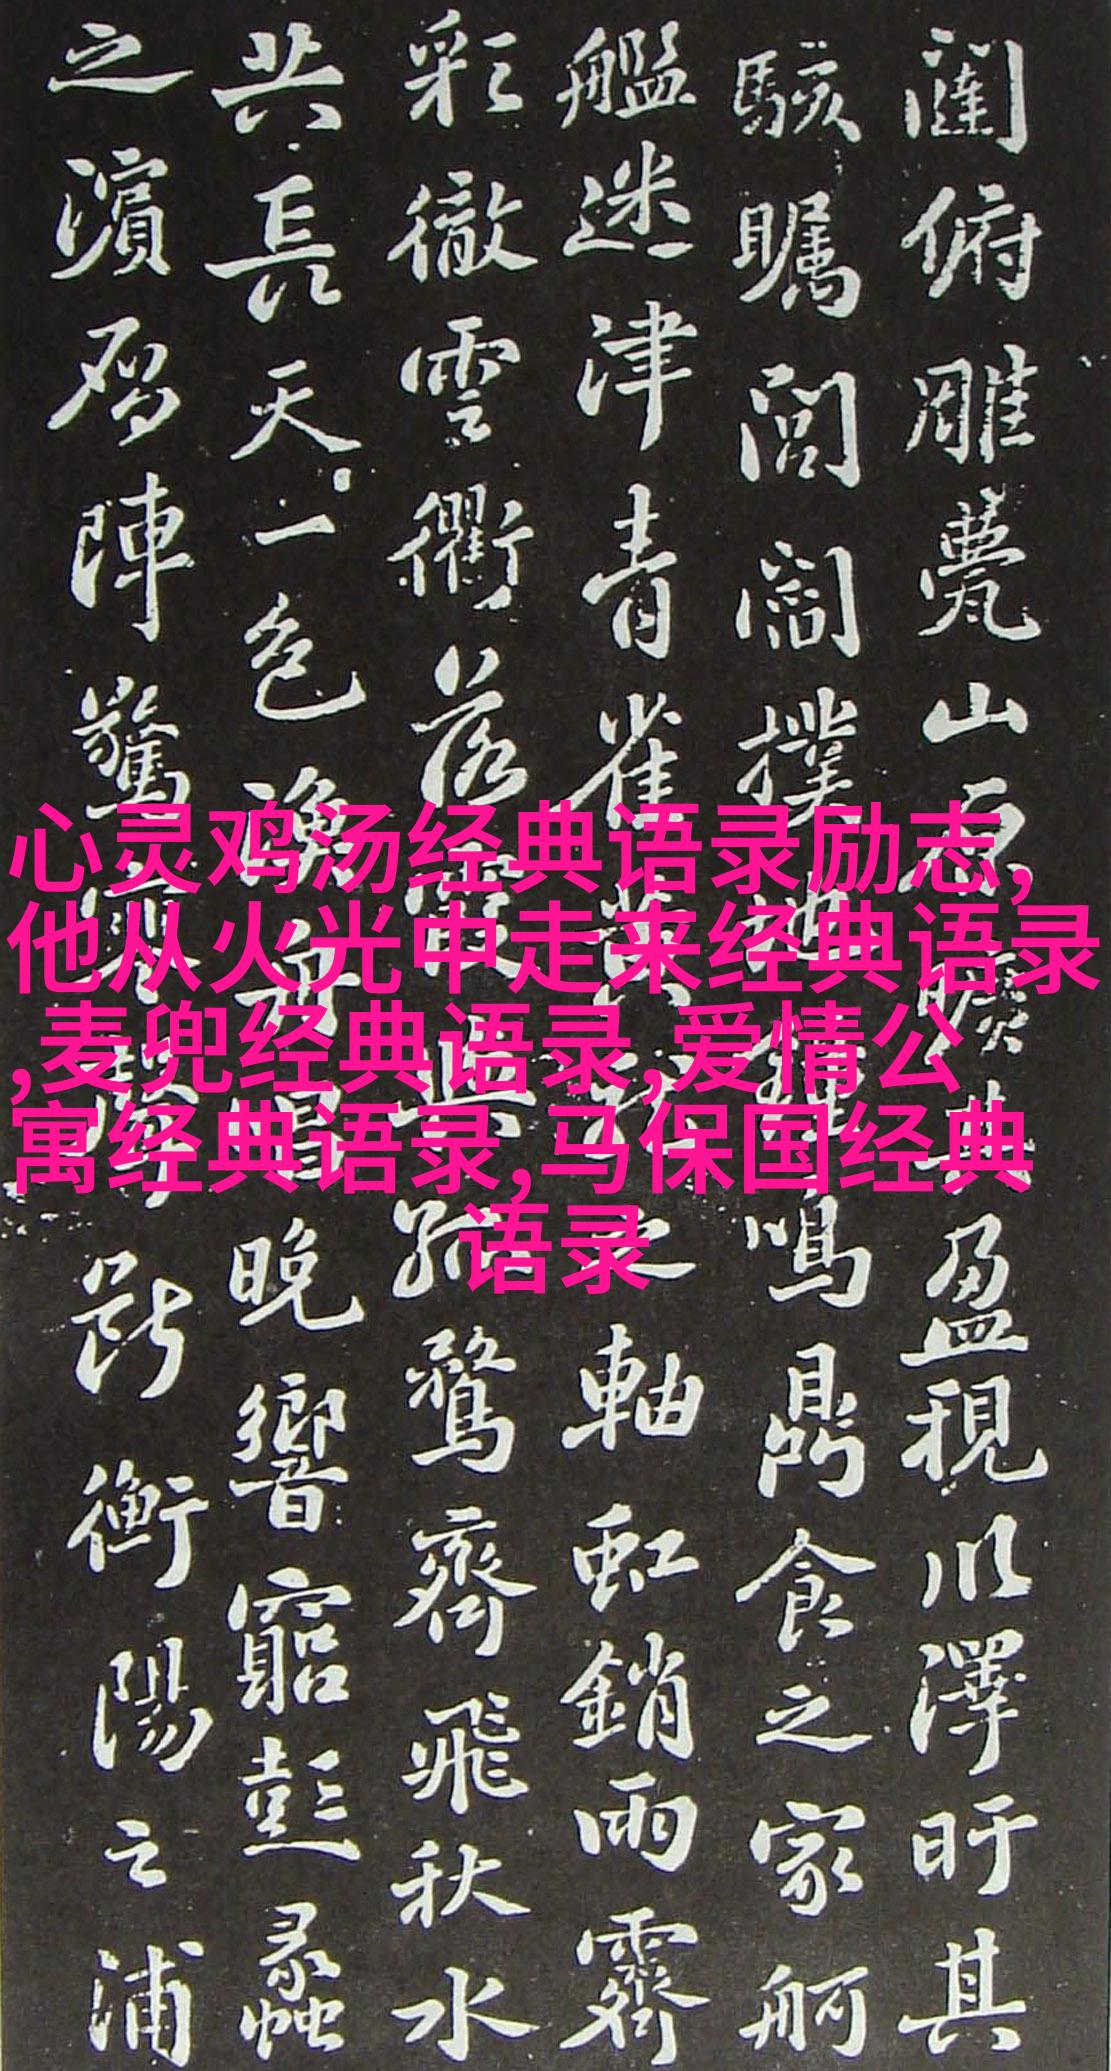 闥俯雕甍山原曠其盈視川澤盱其
駭矚閭閻撲地鍾鳴鼎食之家舸
艦迷津青雀黃龍之軸虹銷雨霽
彩徹雲衢落霞與孤鶩齊飛秋水
共長天一色漁舟唱晚響窮彭蠡
之濱鴈陣驚寒聲斷衡陽之浦
心灵鸡汤经典语录励志,
他从火光中走来经典语录
,麦兜经典语录,爱情公
寓经典语录,马保国经典
语录